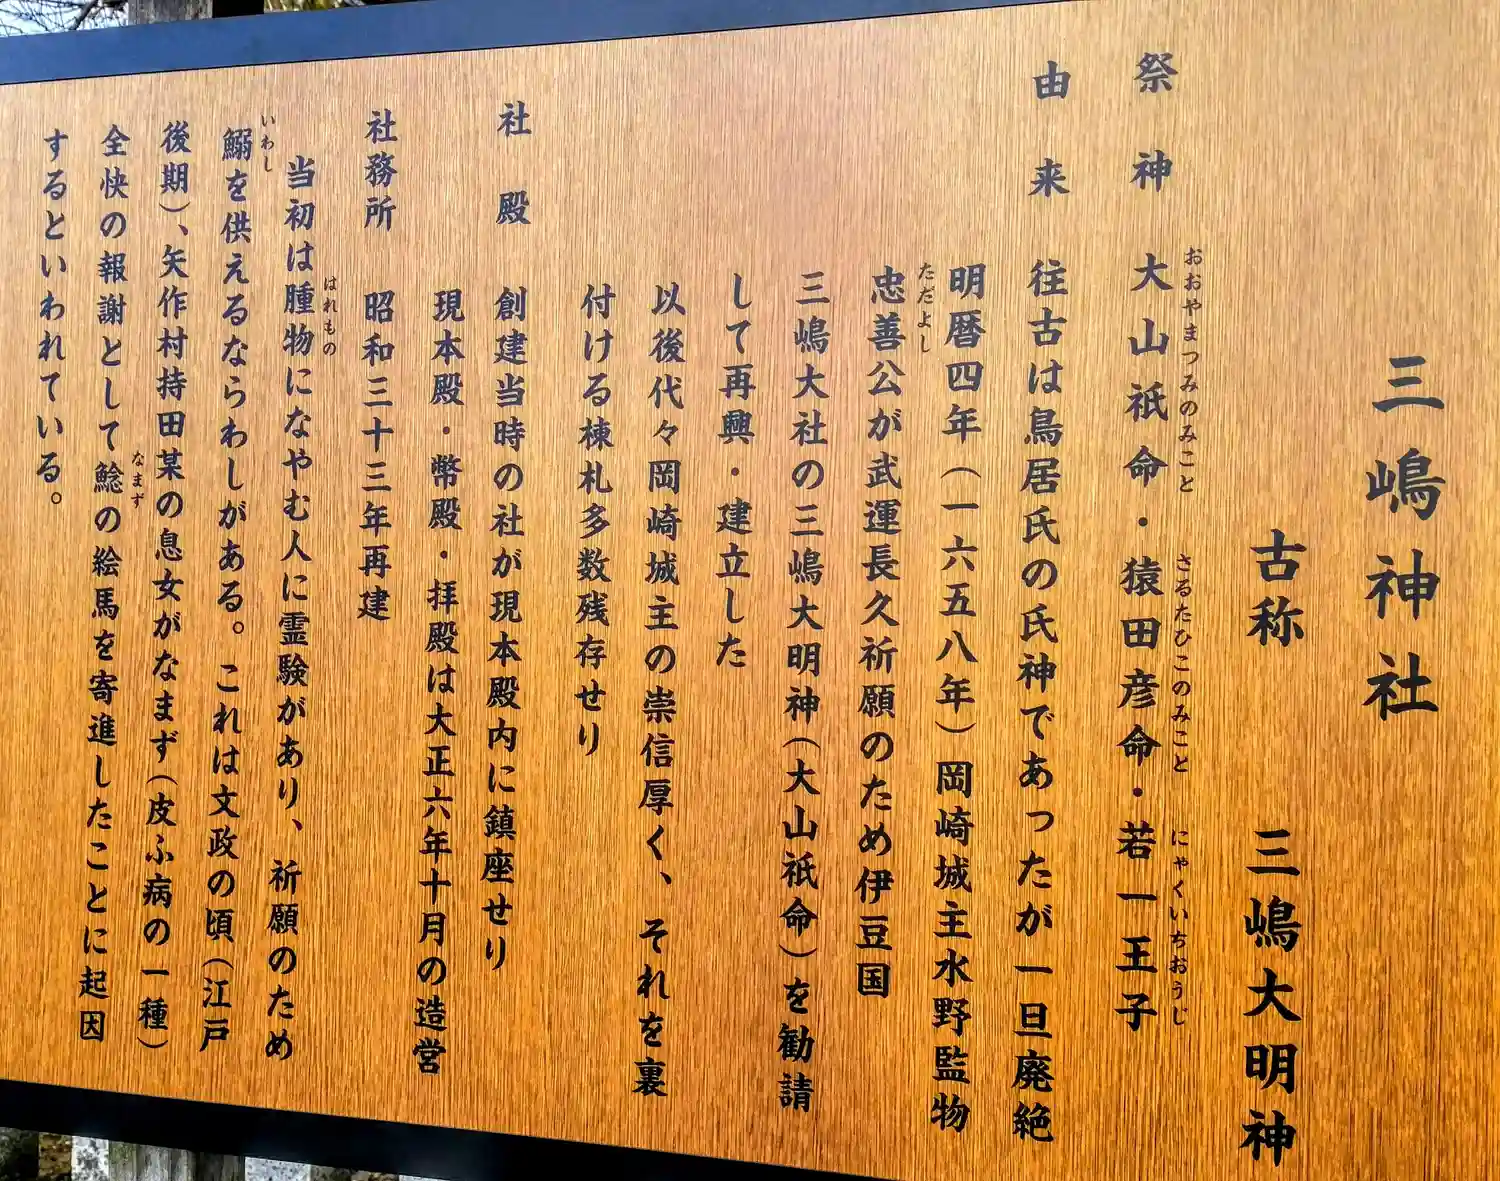 三嶋神社
古称　三嶋大明神
祭神　大山祇命・猿田彦命・若一王子
おおやまつみのみこと　さるたひこのみこと　にゃくいちおうじ
由来　往古は鳥居氏の氏神であったが一旦廃絶
明暦四年（一六五八年）岡崎城主水野監物
忠善公が武運長久祈願のため伊豆国
ただよし
三嶋大社の三嶋大明神（大山祇命）を勧請
して再興・建立した
以後代々岡崎城主の崇信厚く、それを裏
付ける棟札多数残存せり
社殿　創建当時の社が現本殿内に鎮座せり
現本殿・幣殿・拝殿は大正六年十月の造営
社務所　昭和三十三年再建
当初は腫物になやむ人に霊験があり、祈願のため
はれもの
鰯を供えるならわしがある。これは文政の頃（江戸
いわし
後期）、矢作村持田某の息女がなまず（皮ふ病の一種）
全快の報謝として鯰の絵馬を寄進したことに起因
なまず
するといわれている。